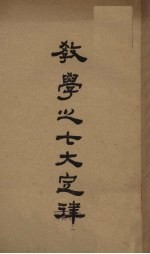 教學之七大定律